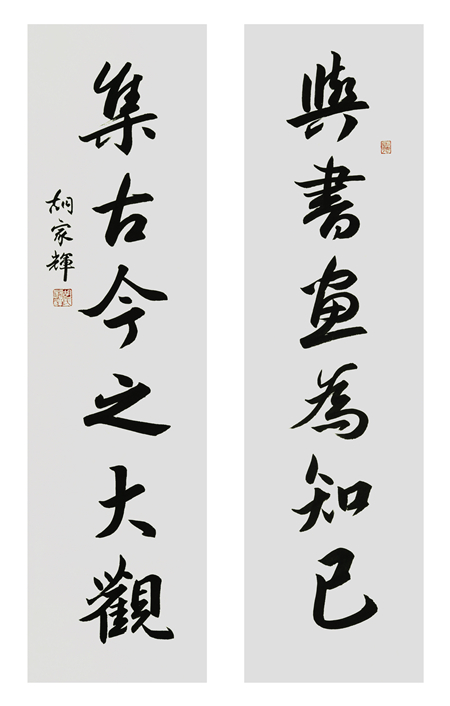 與書畫為知己
集古今之大觀
胡家輝